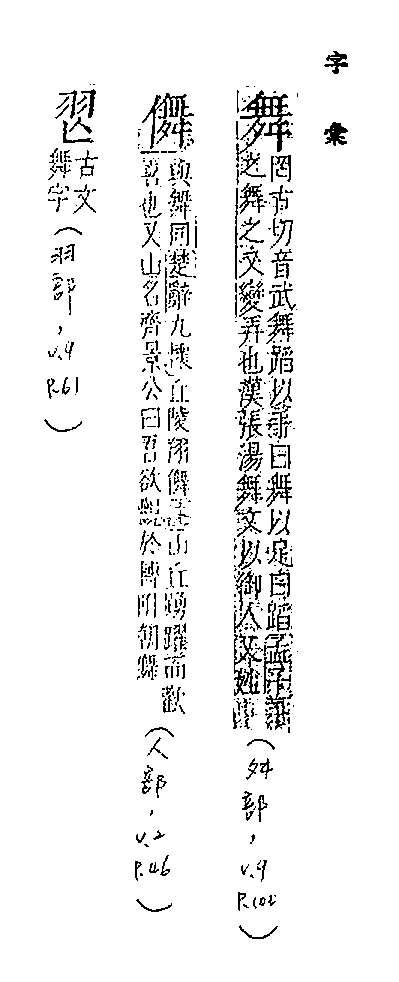 字彙
舞
罔古切音武舞蹈以手曰舞以足曰蹈孟子
之舞之又變弄也漢張湯舞文以御人又姓
(舛部, v.9 P.102)
儛
與舞同楚辭九懷丘陵翔儛 山丘踴躍而歡
喜也又山名齊景公曰吾欲觀於轉附朝儛
(人部, v.2 P.46)
古文
舞字
(羽部, v.9 P.61)